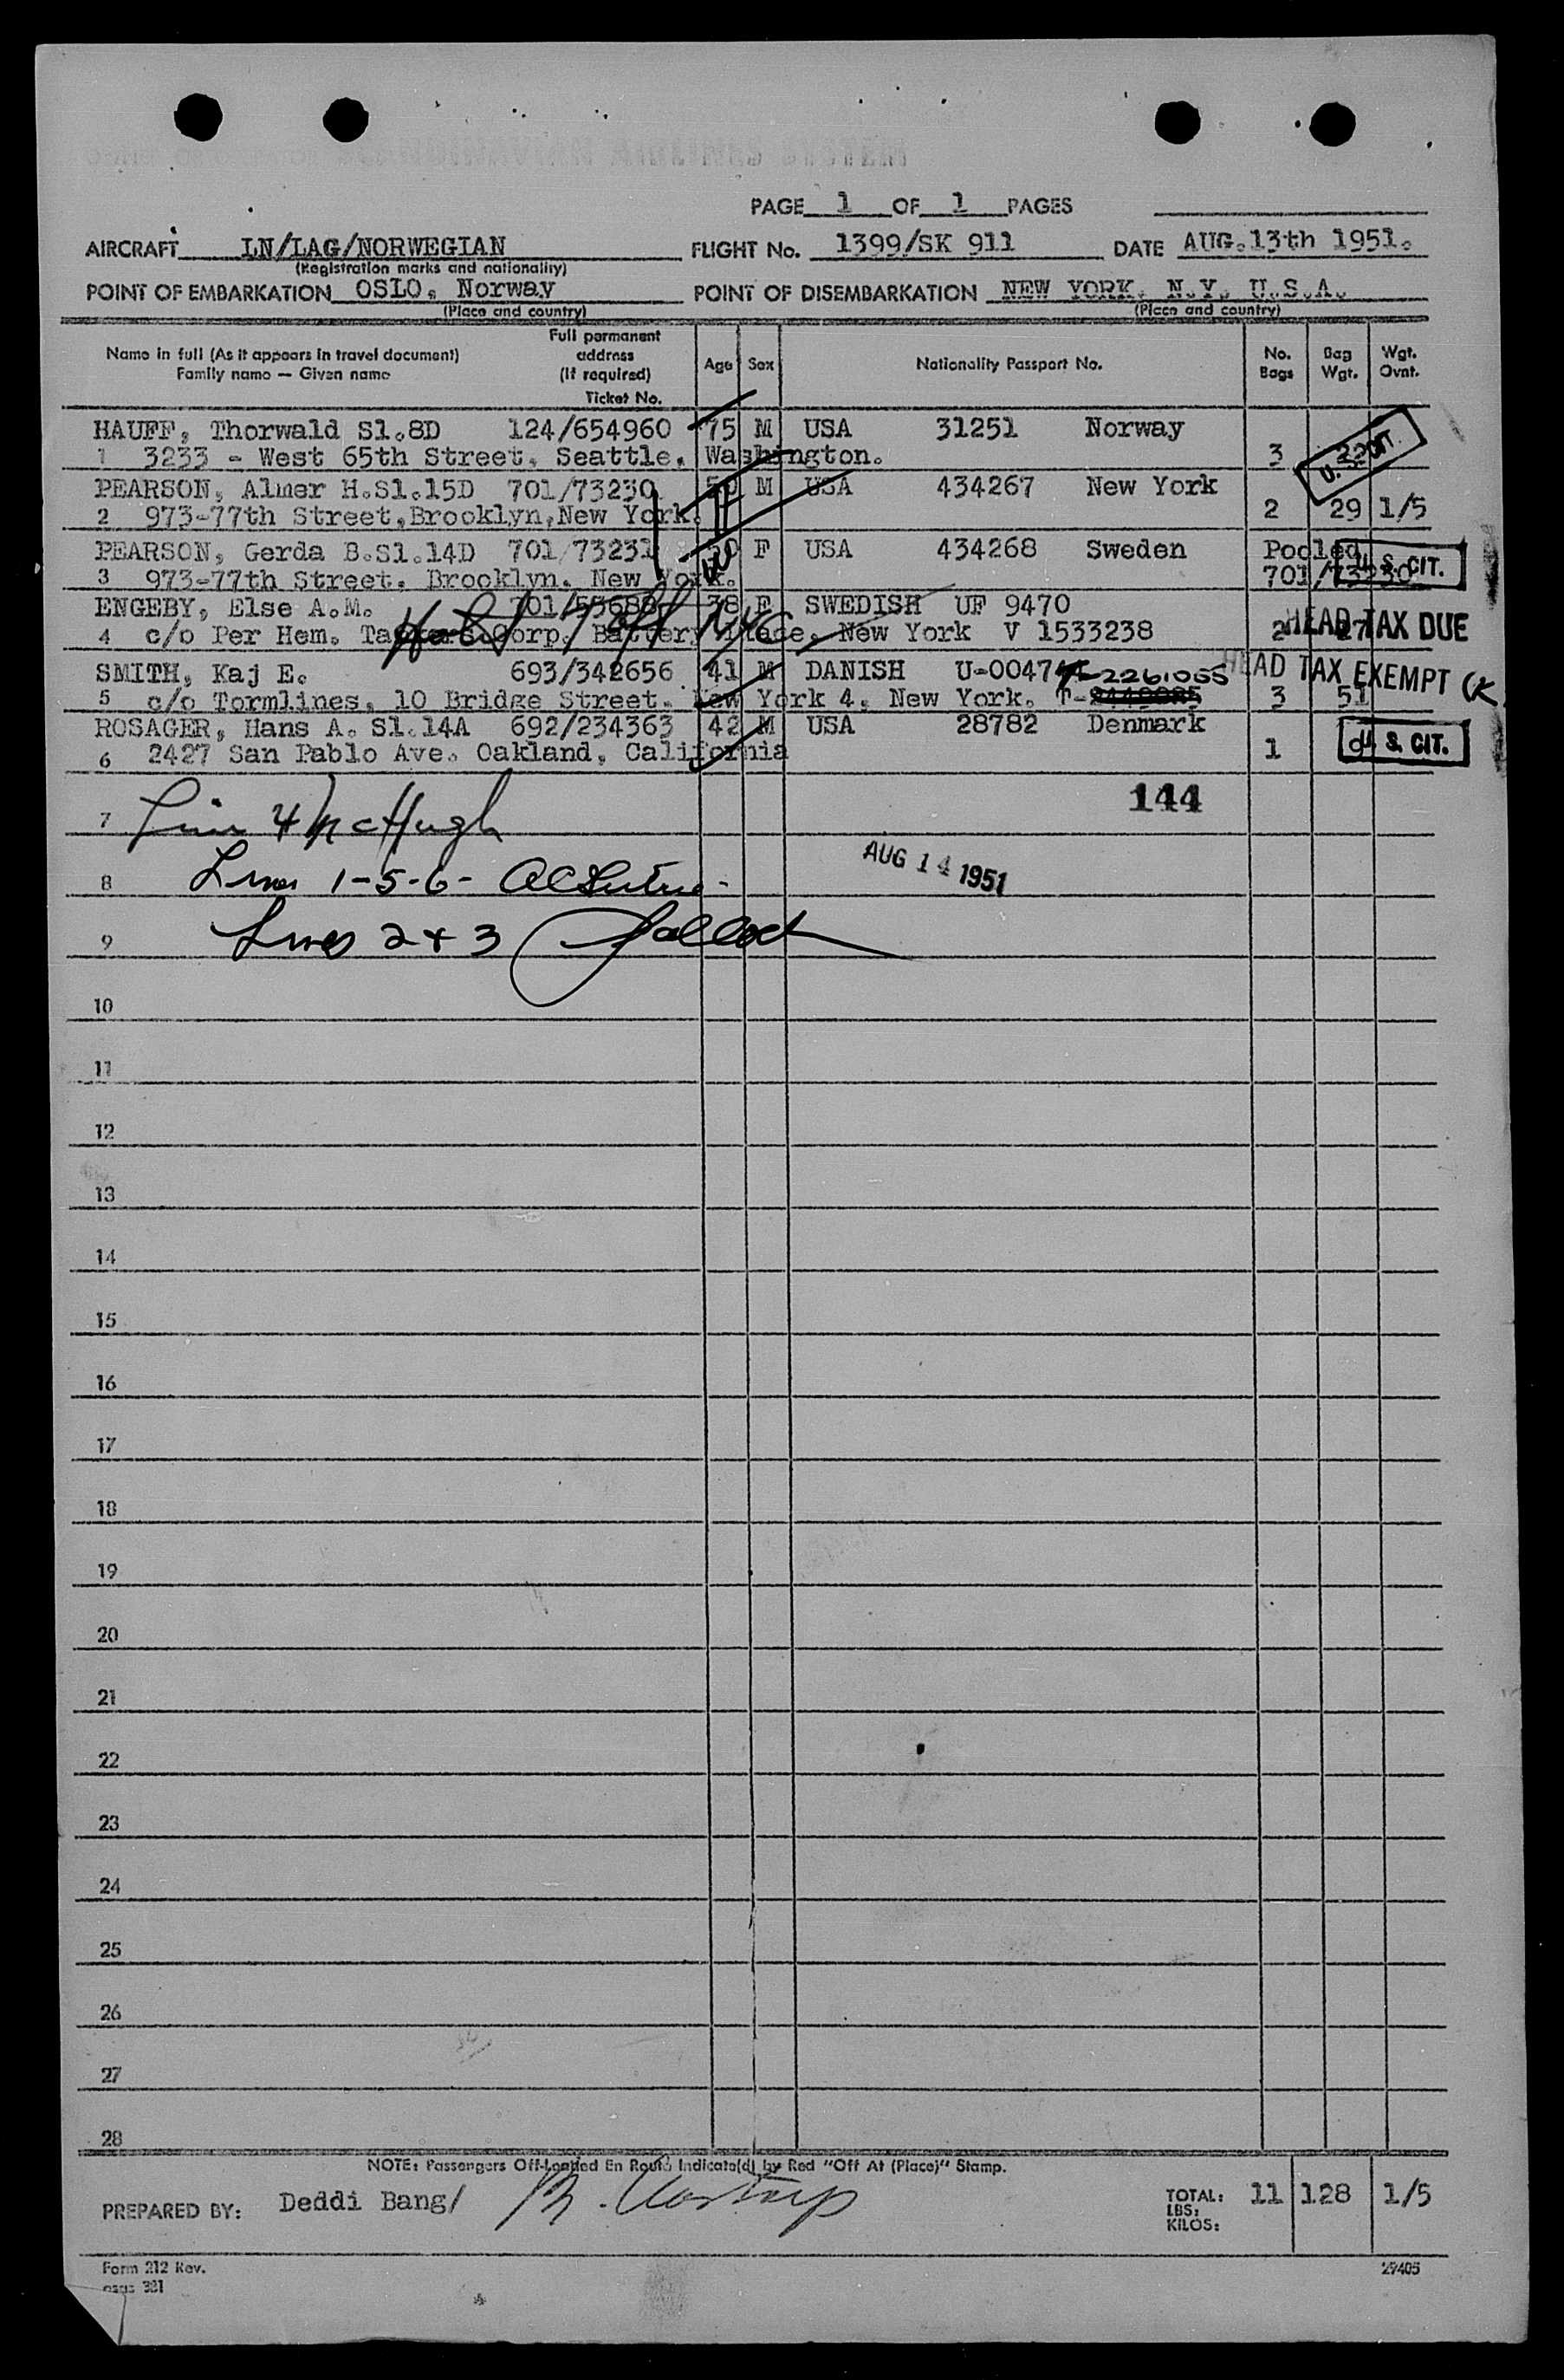 PAGE 1 OF 1 PAGES
AIRCRAFT LN/LAG/NORWEGIAN FLIGHT No. 1399/SK 911 DATE AUG.13th 1951.
(Registration marks and nationality)
POINT OF EMBARKATION OSLO, Norway POINT OF DISEMBARKATION NEW YORK, N.Y. U.S.A.
(Place and country) (Place and country)
Name in full (As it appears in travel document) Family name — Given name Full permanent address (If required) Ticket No. Age Sex Nationality Passport No. No. Bags Bag Wgt. Wgt. Ovnt.
HAUFF, Thorwald Sl.8D 124/654960 75 M USA 31251 Norway
1 3233 - West 65th Street, Seattle, Washington. 3 22 U.S. CIT.
PEARSON, Almer H.Sl.15D 701/73230 M USA 434267 New York
2 973-77th Street,Brooklyn,New York. 2 29 1/5
PEARSON, Gerda B.Sl.14D 701/73231 F USA 434268 Sweden Pooled
3 973-77th Street, Brooklyn, New York. 701/73230 U.S. CIT.
ENGEBY, Else A.M. 701/55688 38 F SWEDISH UF 9470
4 c/o Per Hem. Corp. Battery Place, New York V 1533238 2 27 HEAD TAX DUE
SMITH, Kaj E. 693/342656 41 M DANISH T-2261055 HEAD TAX EXEMPT
5 c/o Tormlines, 10 Bridge Street. New York 4, New York. 3 51
ROSAGER, Hans A. Sl.14A 692/234363 42 M USA 28782 Denmark
6 2427 San Pablo Ave. Oakland, California 1 U.S. CIT.
144
7 Line 4 McHugh
AUG 14 1951
8 Lines 1-5-6-
9 Lines 2 + 3
10
11
12
13
14
15
16
17
18
19
20
21
22
23
24
25
26
27
28
NOTE: Passengers Off-Loaded En Route Indicate(d) by Red "Off At (Place)" Stamp.
PREPARED BY: Deddi Bang/ TOTAL: 11 128 1/5
LBS:
KILOS:
Form 212 Rev. 29405
osas 381